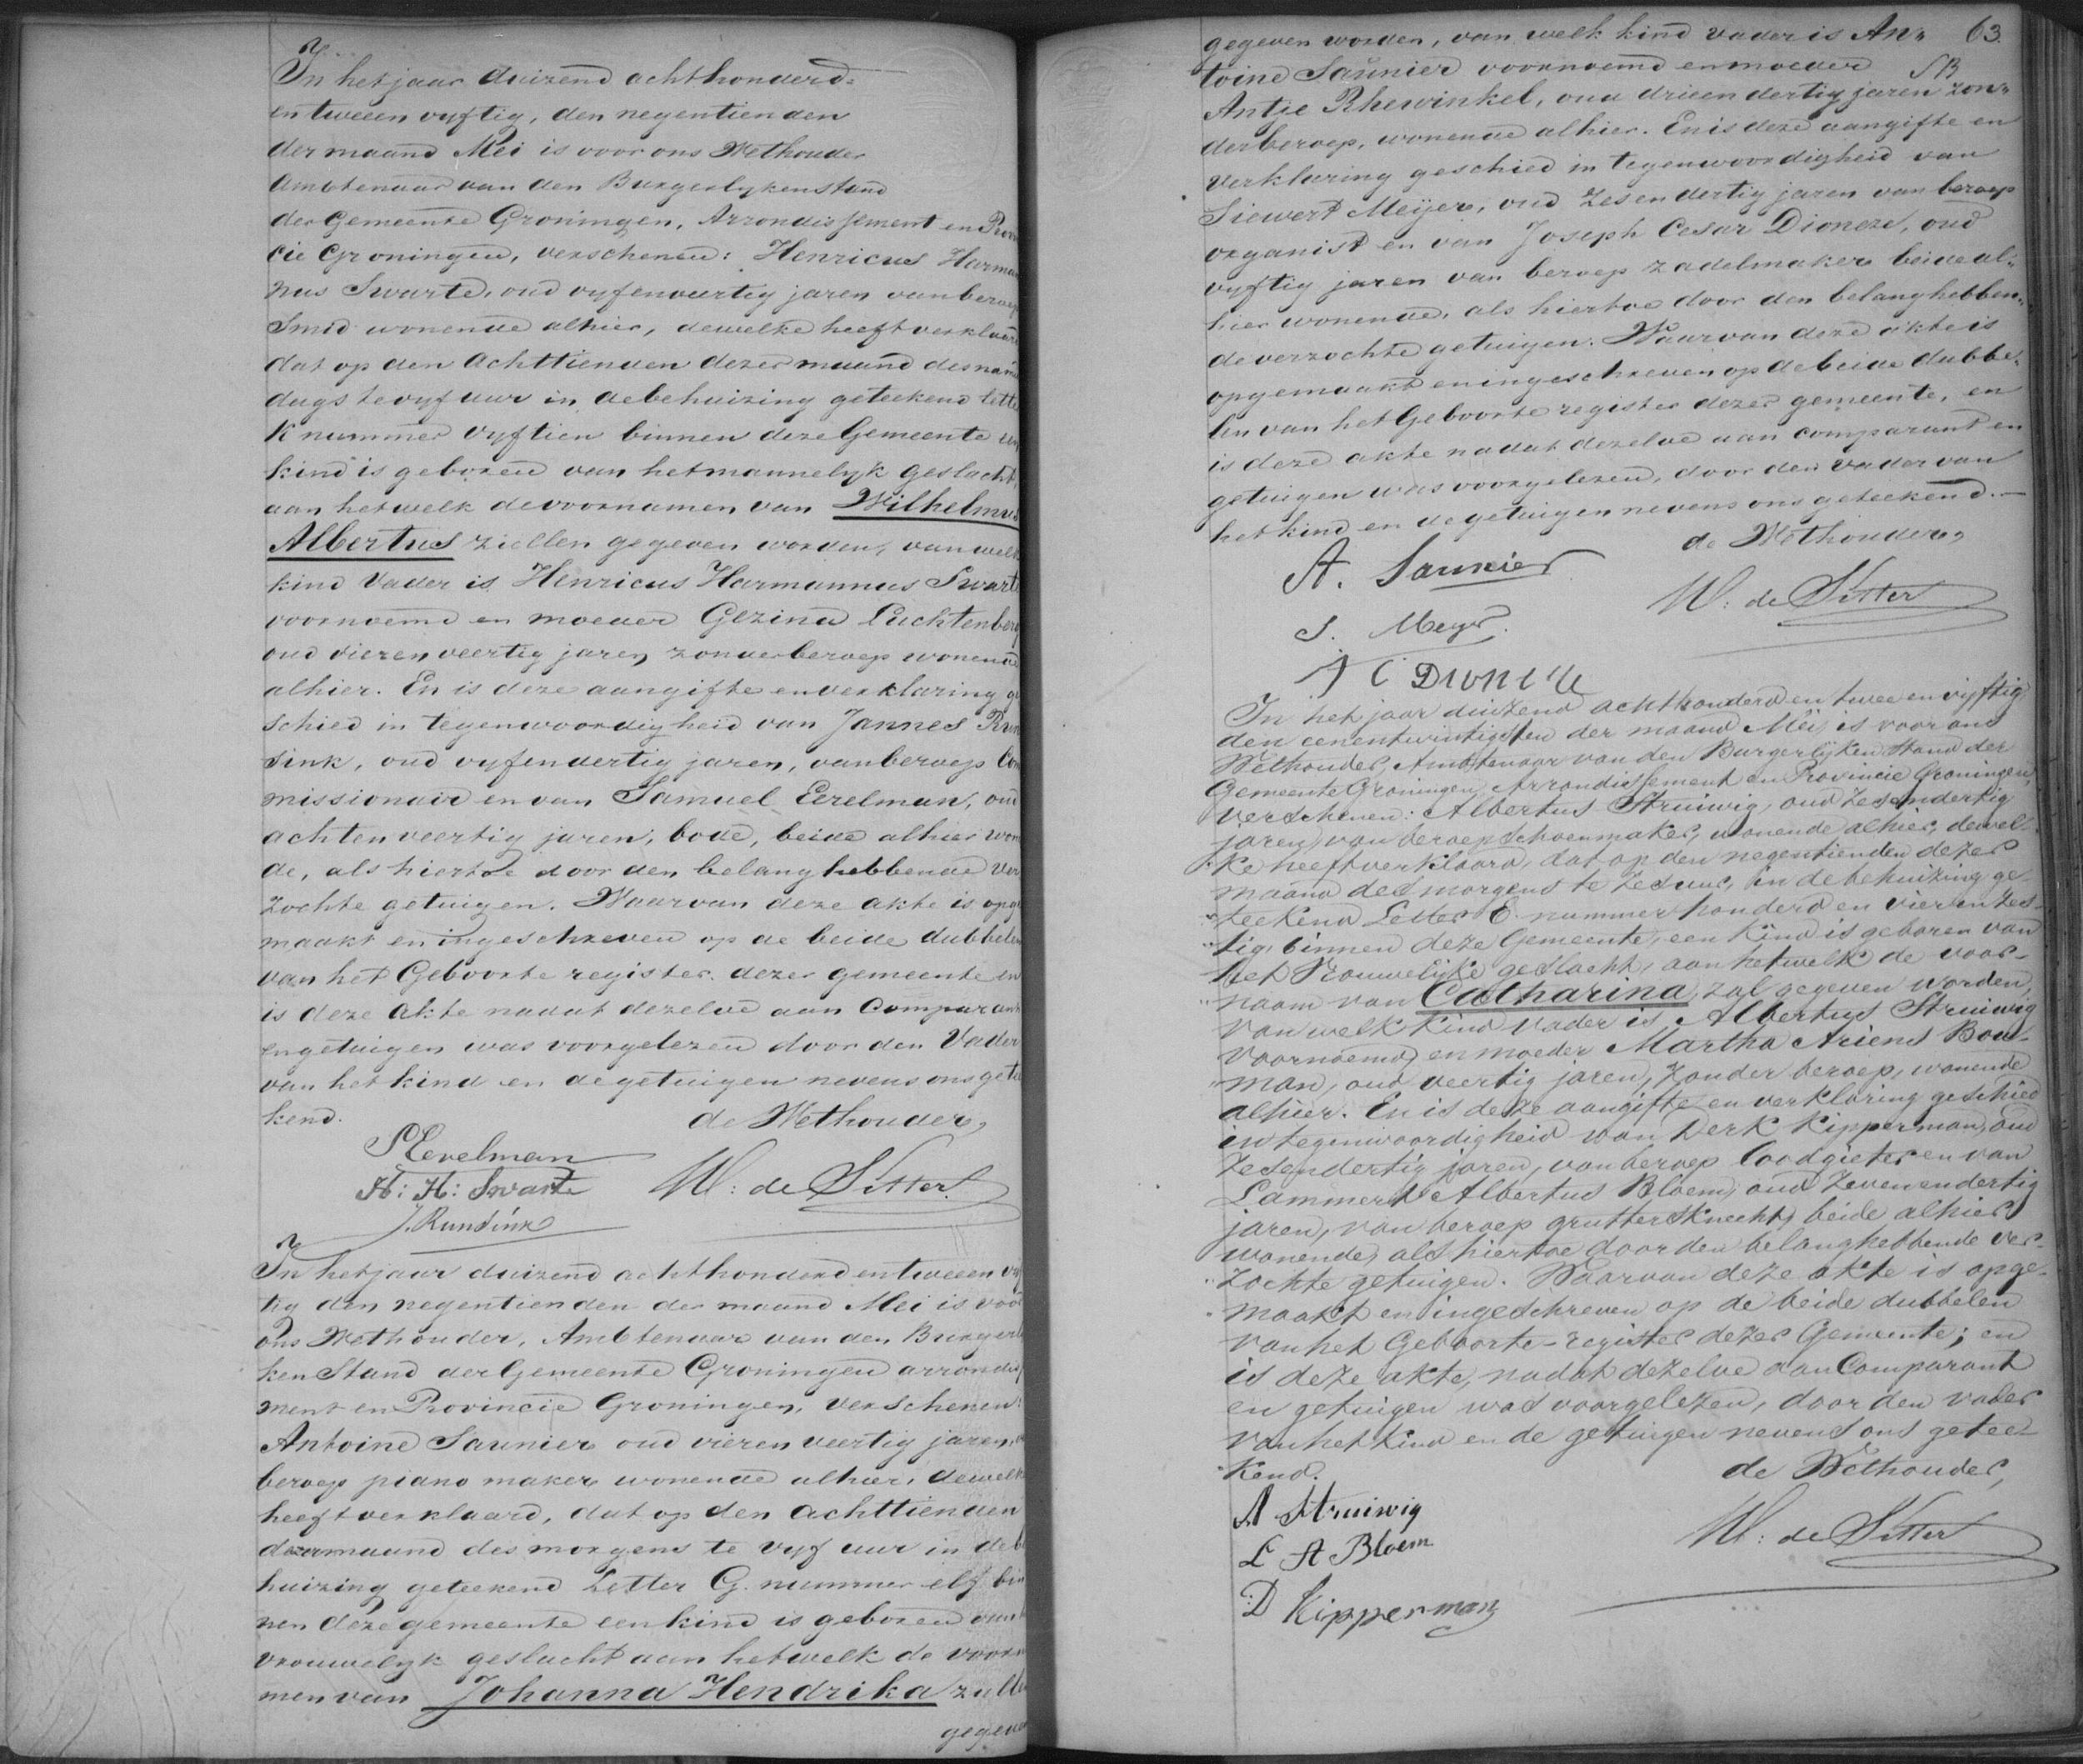 In het jaar duizend achthonderd
en tweeen vyftig, den negentienden
der maand Mei is voor ons Wethouder
Ambtenaar van den Burgerlyken stand
der Gemeente Groningen, Arrondissement en Provin
cie Groningen, verschenen: Henricus Harman
nus Swarte, oud vyfenveertig jaren van beroep
Smid wonende alhier, dewelke heeft verklaard
dat op den achttienden dezer maand des namid
dags te vyf uur in de behuizing geteekend letter
K nummer vyftien binnen deze Gemeente een
kind is geboren van het mannelyk geslacht,
aan hetwelk de voornamen van Wilhelmus
Albertus zullen gegeven worden, van welk
kind Vader is Henricus Harmannus Swarte
voornoemd en moeder Gezina Luchtenberg
oud vierenveertig jaren zonder beroep wonende
alhier. En is deze aangifte en verklaring ge
schied in tegenwoordigheid van Jannes Run
sink, oud vyfendertig jaren, van beroep Com
missionair en van Samuel Eerelman, oud
achtenveertig jaren, bode, beide alhier wonen
de, als hiertoe door den belanghebbende ver
zochte getuigen. Waarvan deze akte is opge
maakt en ingeschreven op de beide dubbelen
van het Geboorte register dezer gemeente en
is deze akte nadat dezelve aan Comparant
en getuigen was voorgelezen door den Vader
van het kind en de getuigen nevens ons getee
kend.
de Wethouder,
S Eerelman
H: H: Swarte
W: de Sitter
J. Runsink
In het jaar duizend achthonderd en tweeen vyf
tig den negentienden der maand Mei is voor
ons Wethouder, Ambtenaar van den Burgerly
ken Stand der Gemeente Groningen arrondisse
ment en Provincie Groningen, verschenen:
Antoine Saunier oud vierenveertig jaren, van
beroep piano maker wonende alhier, dewelke
heeft verklaard, dat op den achttienden
dezer maand des morgens te vyf uur in de be
huizing geteekend Letter G. nummer elf bin
nen deze gemeente een kind is geboren van het
vrouwelyk geslacht aan hetwelk de voorna
men van Johanna Hendrika zullen
gegeven
63
SB
gegeven worden, van welk kind vader is An„
toine Saunier voornoemd en moeder
Antje Rhewinkel, oud drieendertig jaren zon„
der beroep, wonende alhier. En is deze aangifte en
verklaring geschied in tegenwoordigheid van
Siewert Meijer, oud zesendertig jaren van beroep
organist en van Joseph Cesar Dioneze, oud
vyftig jaren van beroep zadelmaker beide al„
hier wonende, als hiertoe door den belanghebben„
de verzochte getuigen. Waarvan deze akte is
opgemaakt en ingeschreven op de beide dubbe„
len van het Geboorte register dezer gemeente, en
is deze akte nadat dezelve aan comparant en
getuigen was voorgelezen, door den vader van
het kind en de getuigen nevens ons geteekend.
de Wethouder,
A. Saunier
W: de Sitter
S. Meyer.
J C Dioneze
In het jaar duizend achthonderd en twee en vijftig
den eenentwintigsten der maand Mei, is voor ons
Wethouder, Ambtenaar van den Burgerlijken Stand der
Gemeente Groningen, Arrondissement en Provincie Groningen,
verschenen: Albertus Struiwig, oud zesendertig
jaren, van beroep schoenmaker, wonende alhier, dewel
ke heeft verklaard, dat op den negentienden dezer
maand des morgens te zes uur, in de behuizing ge
teekend Letter E. nummer honderd en vierenzes
tig, binnen deze Gemeente, een kind is geboren van
het Vrouwelijke geslacht, aan hetwelk de voor-
naam van Catharina, zal gegeven worden,
van welk kind vader is Albertus Struiwig
voornoemd, en moeder Martha Ariens Bou-
man, oud veertig jaren, zonder beroep, wonende
alhier. En is deze aangifte en verklaring geschied
in tegenwoordigheid van Derk Kipperman, oud
zesendertig jaren, van beroep loodgieter en van
Lammert Albertus Bloem, oud zevenendertig
jaren, van beroep gruttersknecht, beide alhier
wonende, als hiertoe door den belanghebbende ver-
zochte getuigen. Waarvan deze akte is opge-
maakt en ingeschreven op de beide dubbelen
van het Geboorte-register dezer Gemeente; en
is deze akte, nadat dezelve aan Comparant
en getuigen was voorgelezen, door den vader
van het kind en de getuigen nevens ons getee-
kend.
de Wethouder,
A Struiwig
L A Bloem
W: de Sitter
D Kipperman